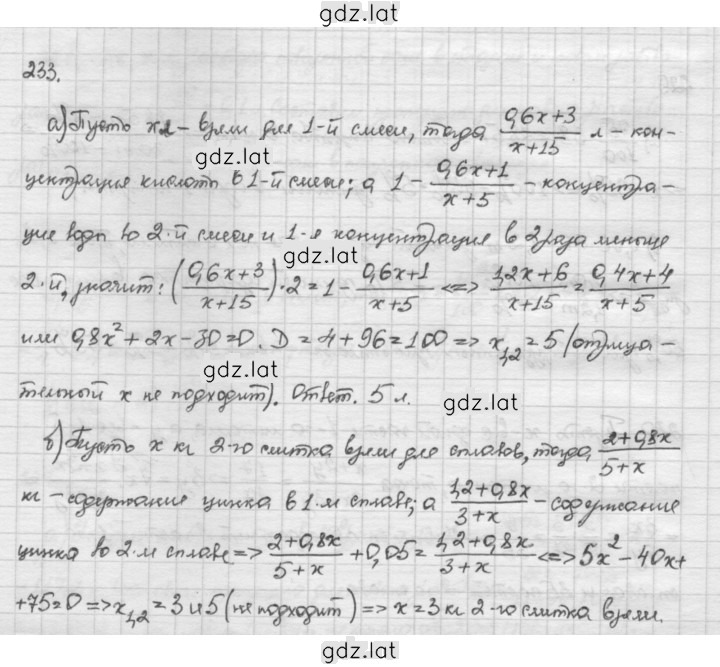 gdz.lat
233.
а) Пусть x л - взяли для 1-й смеси, тогда (0,6x+3)/(x+15) л - кон-
gdz.lat
центрация кислоты в 1-й смеси; а 1 - (0,6x+1)/(x+5) - концентра-
ция воды во 2-й смеси и 1-я концентрация в 2 раза меньше
gdz.lat
2-й, значит: ((0,6x+3)/(x+15))·2=1-(0,6x+1)/(x+5) <=> (1,2x+6)/(x+15)=(0,4x+4)/(x+5)
или 0,8x²+2x-30=0. D=4+96=100 => x₁,₂=5 (отрица-
gdz.lat
тельный x не подходит). Ответ. 5 л.
gdz.lat
б) Пусть x кг 2-го слитка взяли для сплавов, тогда (2+0,8x)/(5+x)
кг - содержание цинка в 1-м сплаве; а (1,2+0,8x)/(3+x) - содержание
цинка во 2-м сплаве => (2+0,8x)/(5+x)+0,05=(1,2+0,8x)/(3+x) <=> 5x²-40x+
+75=0 => x₁,₂=3 и 5 (не подходит) => x=3 кг 2-го слитка взяли.
gdz.lat